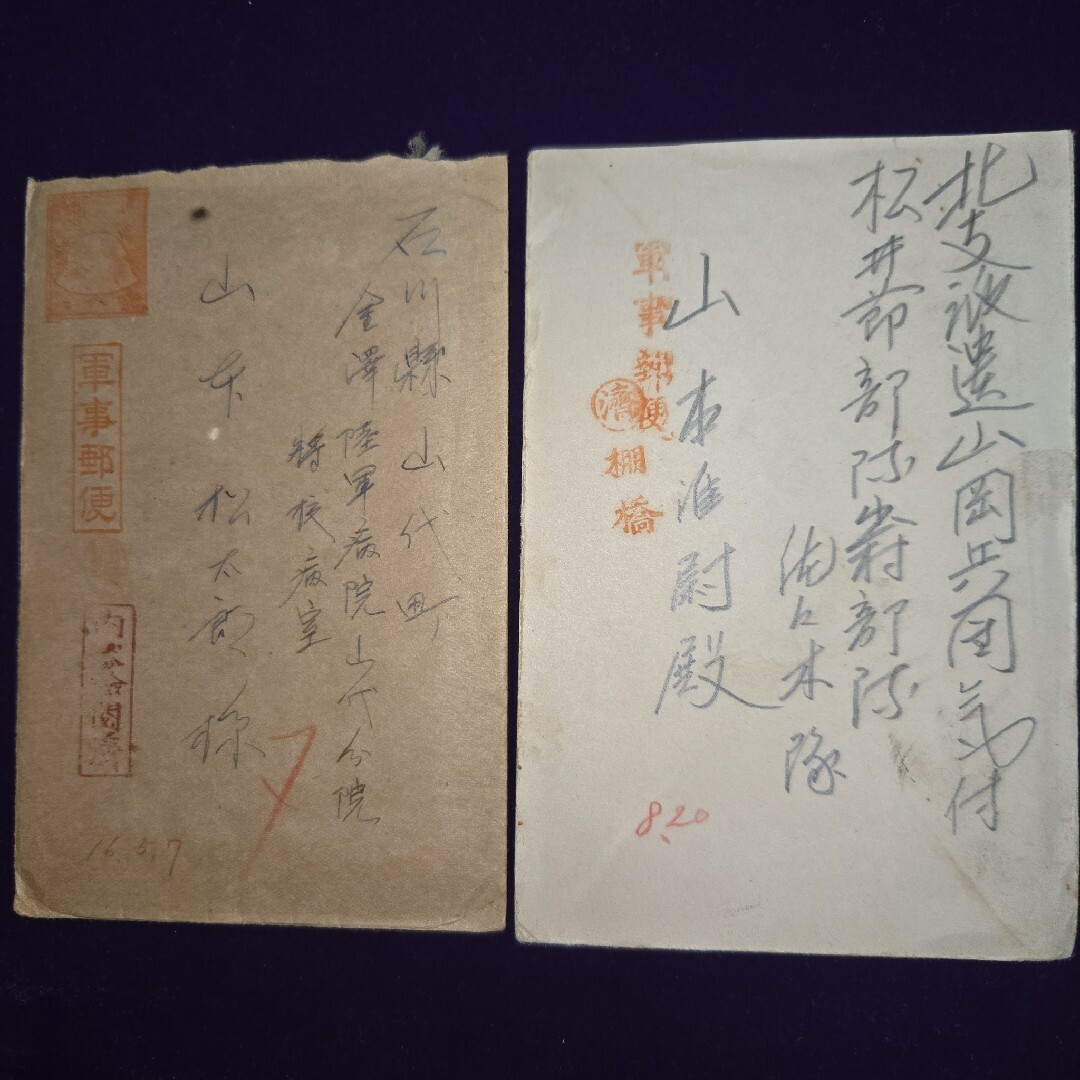 石川縣山代町
金澤陸軍病院山代分院
將校病室
山本松太郎様
軍事郵便
内
16.5.7
北支派遣山岡兵団気付
松井節部隊嵜部隊
佐々木隊
山本准尉殿
軍事郵便
濟
棚橋
8.20